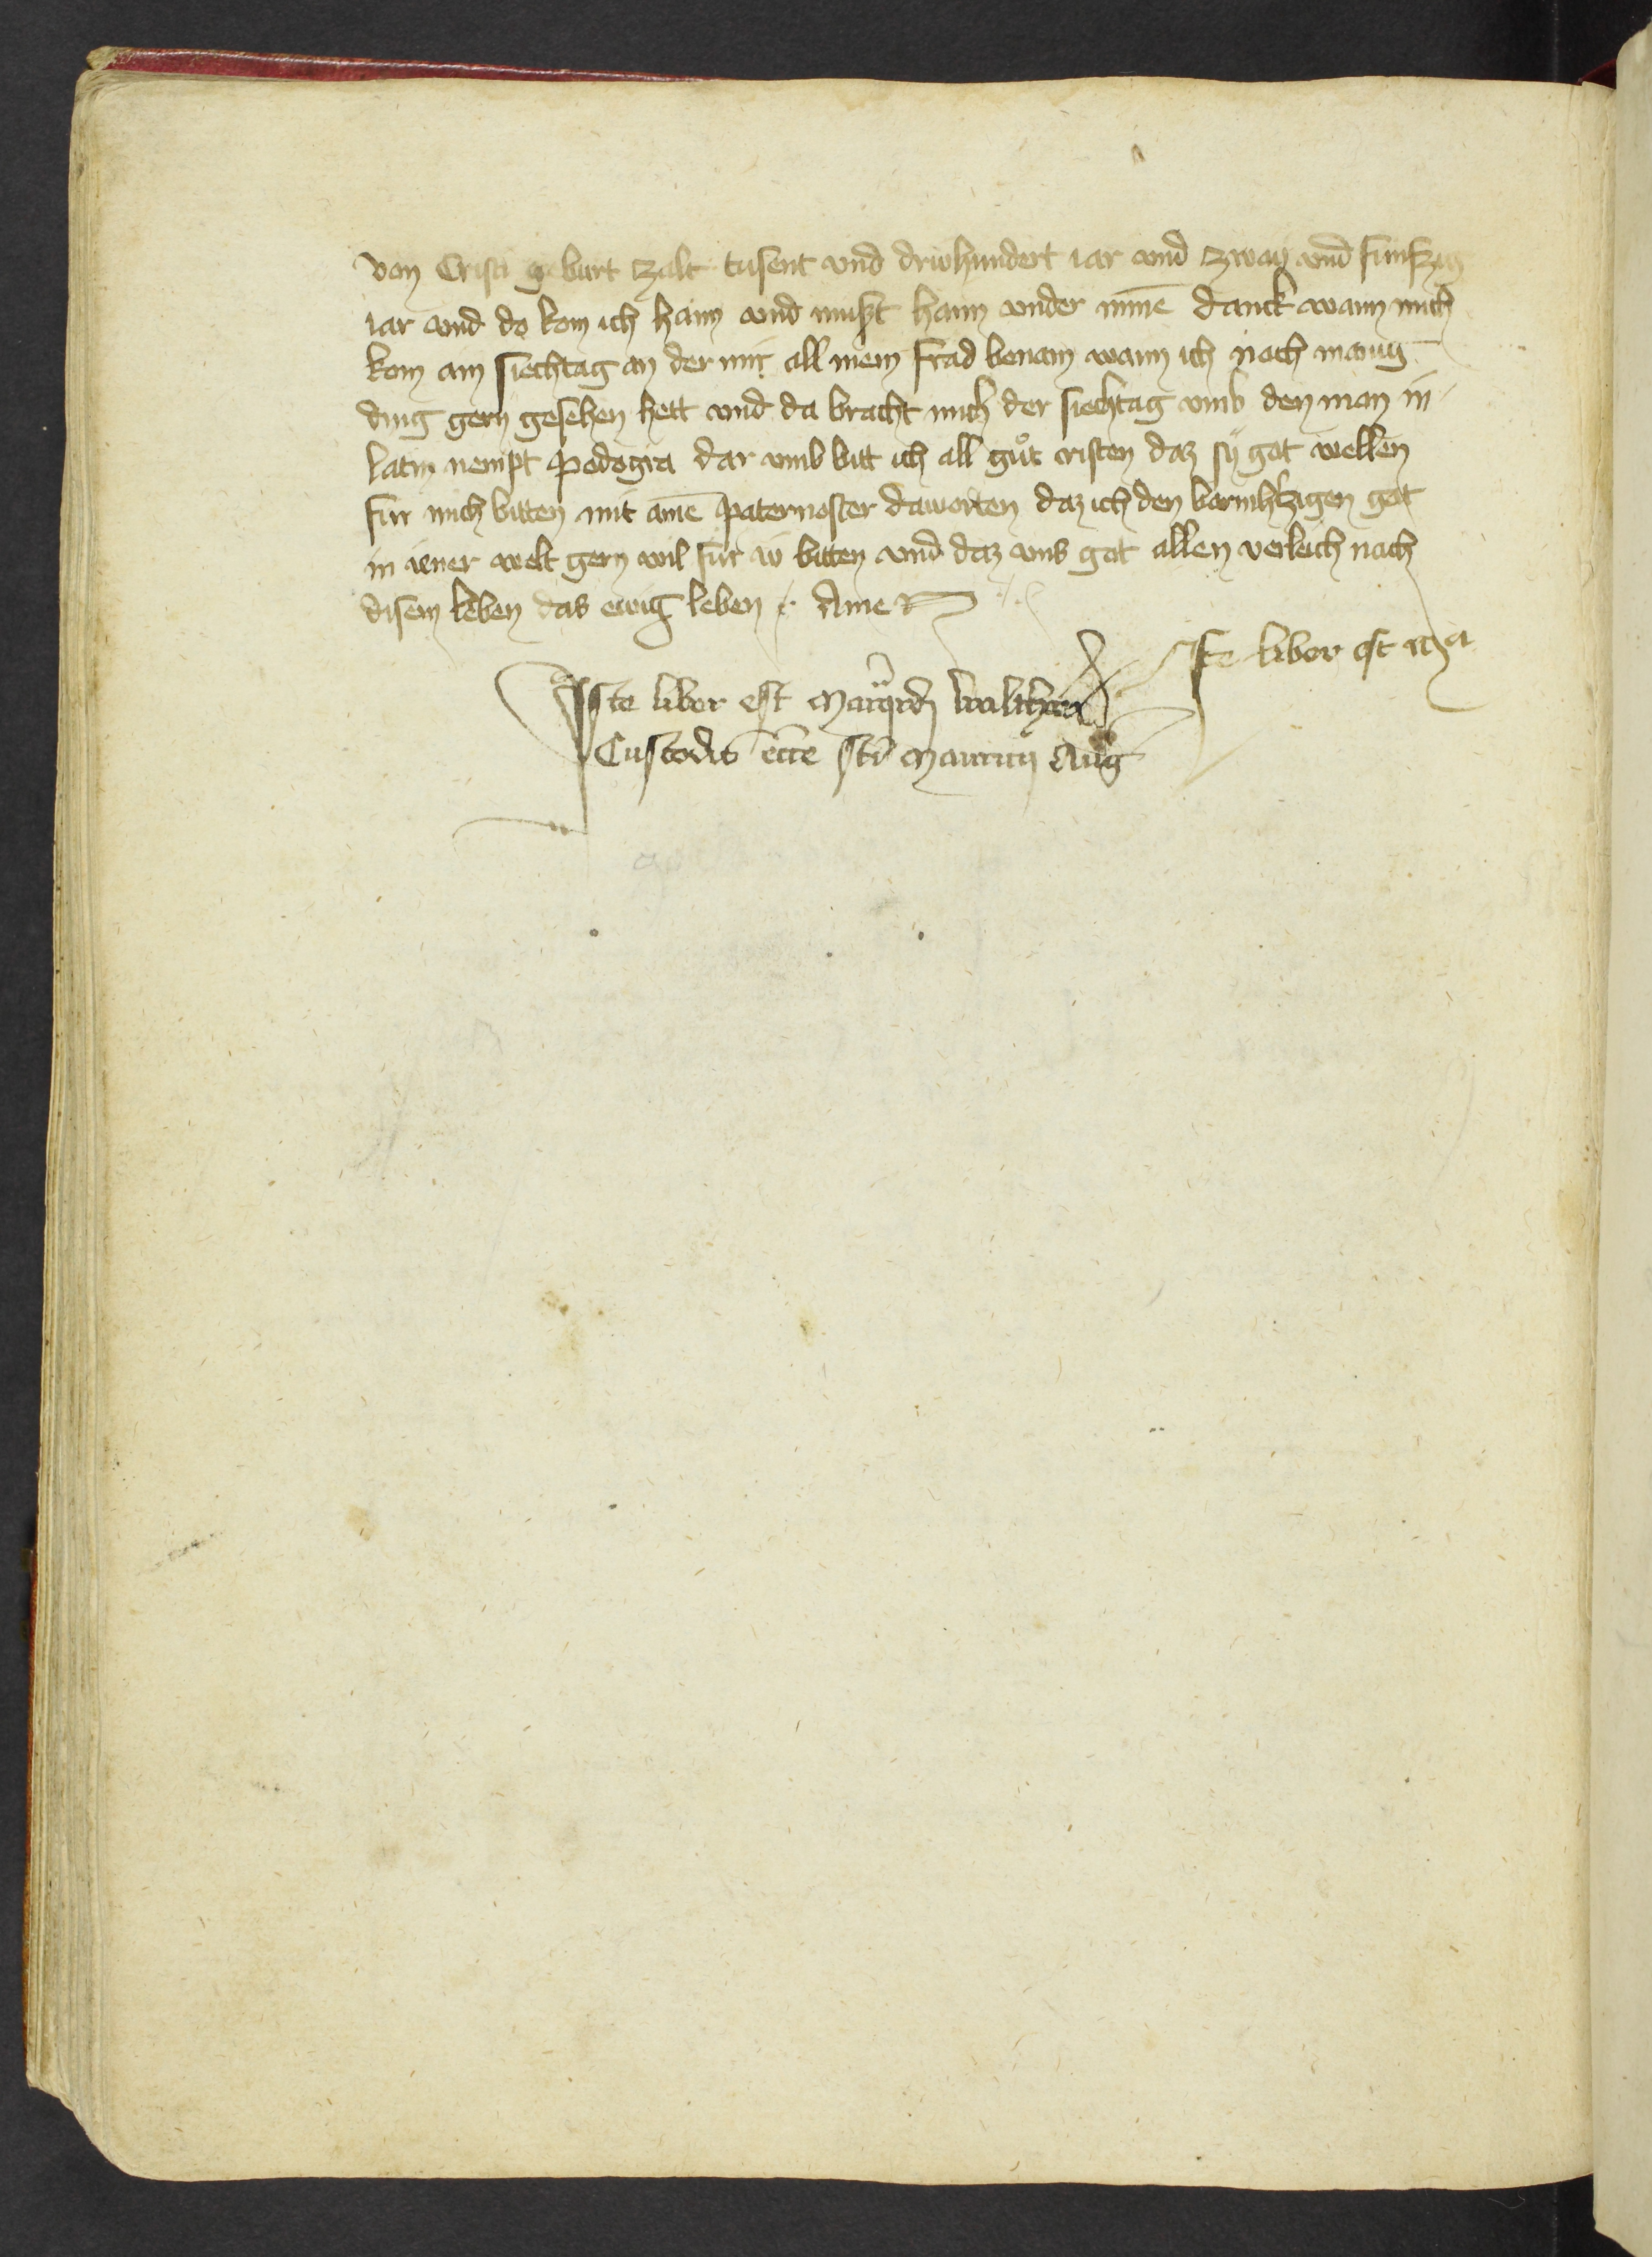 von Cristi geburt zalt tusent vnd driwhundert iar vnd zway vnd funfzig
iar vnd do kom ich haim vnd must haim vnder minē danck wann mich
kom ain siechtag an der mir all mein frad benam wann ich noch manig
ding gern gesehen hett vnd da bracht mich der siechtag vmb den man in
latin nempt podogra dar vmb bitt ich all gůt cristen daz sÿ got wellen
fur mich bitten mit aine paternoster daworten daz ich den barmhʼzigen got
in iener welt gern wil fur iv̈ bitten vnd daz vns got allen verleich nach
disem leben das ewig leben Amen
Iste liber est
Iste liber est Marqrdi
Custodis eccē sti Mauricij Aug